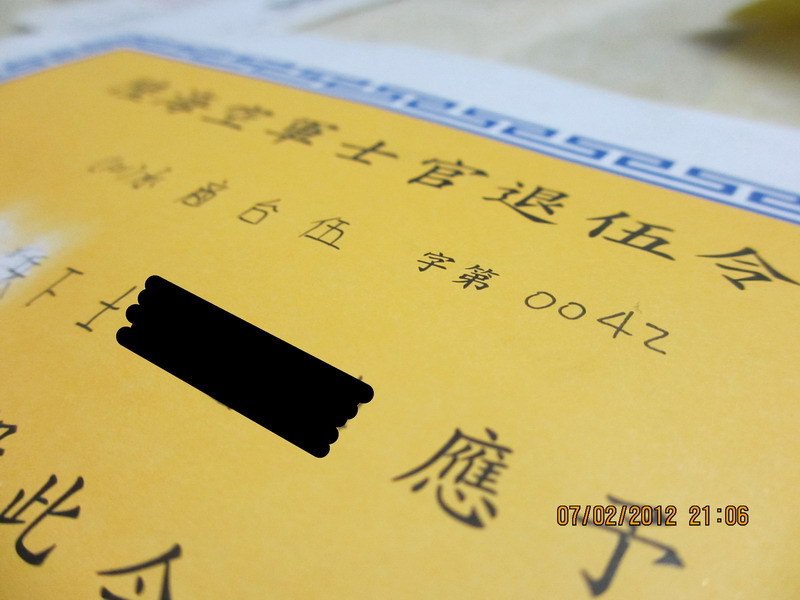 陸海空軍士官退伍令
台伍 字第 0042
下士
應予
此令
07/02/2012 21:06